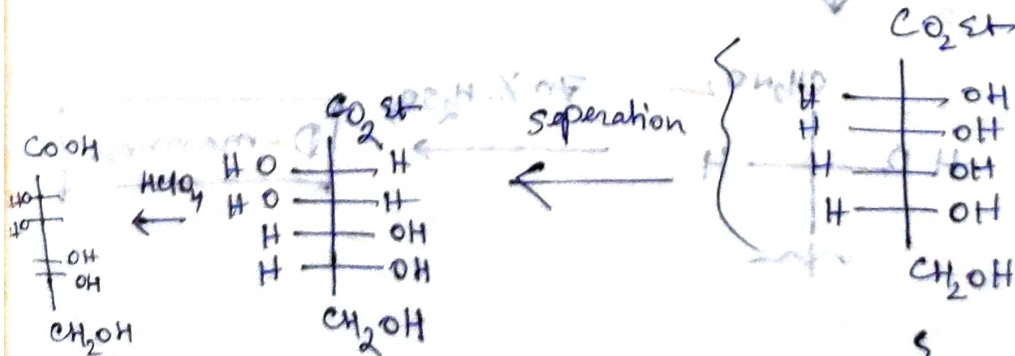 CO2Et
H OH
H OH
H OH
H OH
CH2OH
S
seperation
CO2Et
HO H
HO H
H OH
H OH
CH2OH
HClO4
COOH
HO
HO
OH
OH
CH2OH